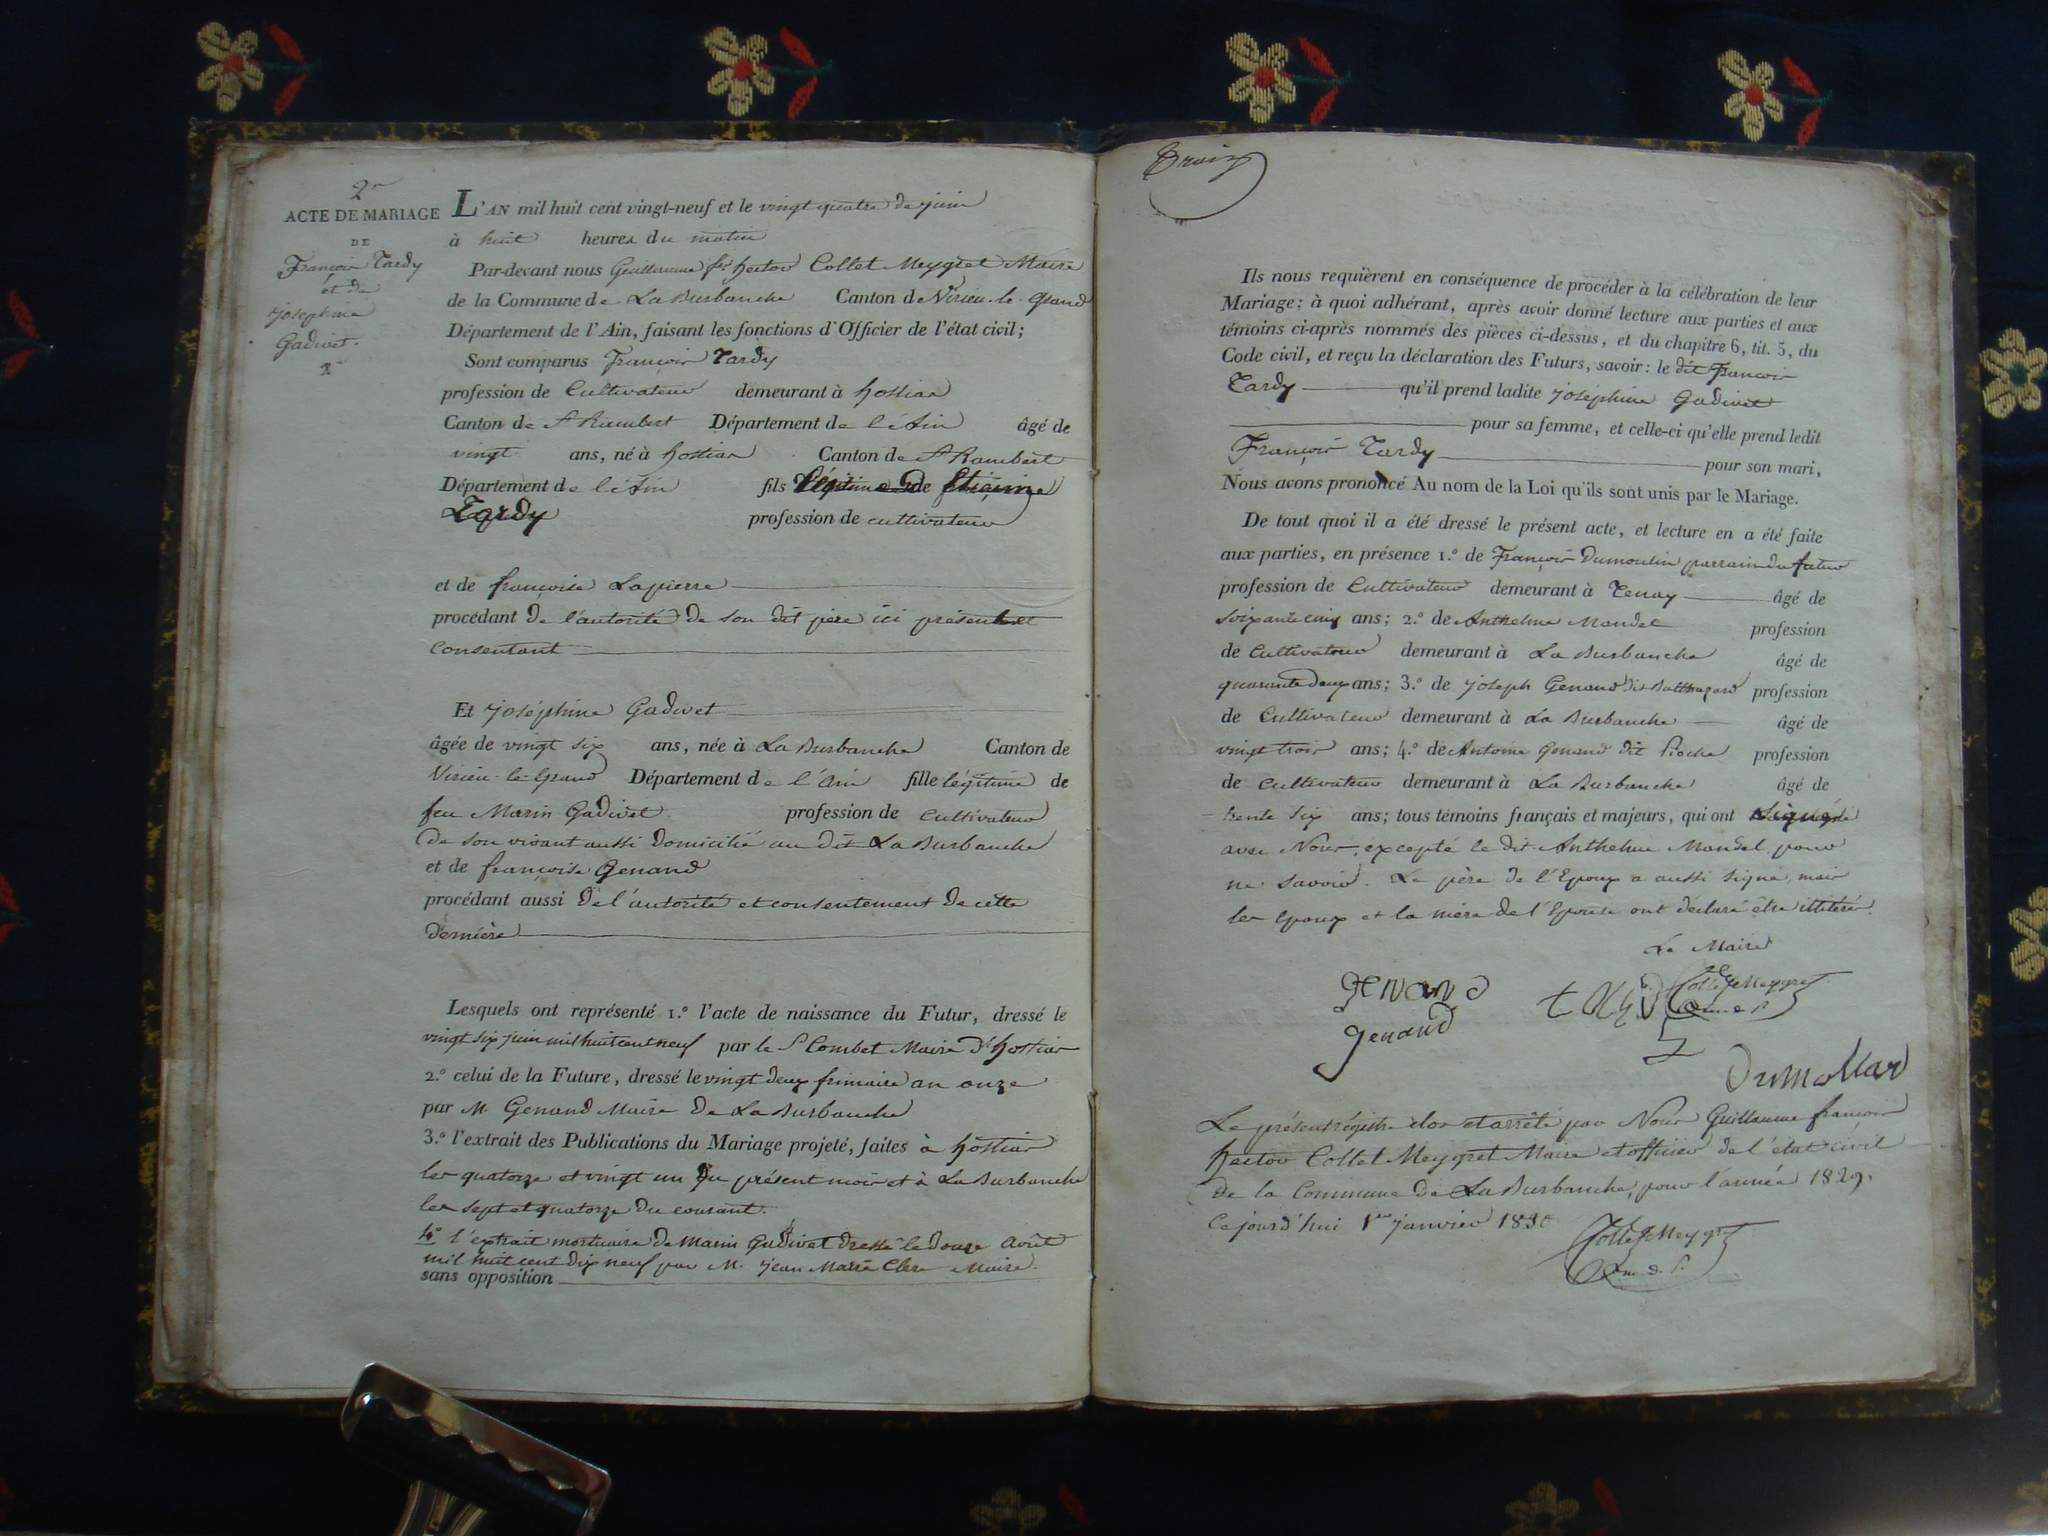 2e
ACTE DE MARIAGE
DE
François Tardy
et de
Joséphine
Gadivet.
2e
L'AN mil huit cent vingt-neuf et le vingt quatre de juin
à huit heures du matin
Par-devant nous Guillaume fs hector Collet Meygret Maire
de la Commune de La Burbanche Canton de Virieu-le-Grand
Département de l'Ain, faisant les fonctions d'Officier de l'état civil;
Sont comparus François Tardy
profession de Cultivateur demeurant à hostias
Canton de St Rambert Département de l'Ain âgé de
vingt ans, né à hostias Canton de St Rambert
Département de l'Ain fils légitime de Etienne
Tardy profession de cultivateur
et de françoise Lapierre
procédant de l'autorité de son dit père ici présent et
consentant
Et joséphine Gadivet
âgée de vingt six ans, née à La Burbanche Canton de
Virieu-le-Grand Département de l'Ain fille légitime de
feu Marin Gadivet profession de cultivateur
de son vivant aussi domicilié au dit La Burbanche
et de françoise Genand
procédant aussi de l'autorité et consentement de cette
dernière
Lesquels ont représenté 1.º l'acte de naissance du Futur, dressé le
vingt six juin mil huit cent neuf par le Sr Combet Maire d'hostias
2.º celui de la Future, dressé le vingt deux frimaire an onze
par M. Genand Maire de La Burbanche
3.º l'extrait des Publications du Mariage projeté, faites à hostias
les quatorze et vingt un du présent mois et à La Burbanche
les sept et quatorze du courant.
4º l'extrait mortuaire de Marin Gadivet dressé le douze Août
mil huit cent dix neuf par M. jean Marie Clerc Maire.
sans opposition
Trois
Ils nous requièrent en conséquence de procéder à la célébration de leur
Mariage; à quoi adhérant, après avoir donné lecture aux parties et aux
témoins ci-après nommés des pièces ci-dessus, et du chapitre 6, tit. 5, du
Code civil, et reçu la déclaration des Futurs, savoir: le dit françois
Tardy qu'il prend ladite joséphine Gadivet
pour sa femme, et celle-ci qu'elle prend ledit
François Tardy pour son mari,
Nous avons prononcé Au nom de la Loi qu'ils sont unis par le Mariage.
De tout quoi il a été dressé le présent acte, et lecture en a été faite
aux parties, en présence 1.º de François Dumoulin parrain du futur
profession de Cultivateur demeurant à Tenay âgé de
soixante cinq ans; 2.º de Anthelme Mandel profession
de Cultivateur demeurant à La Burbanche âgé de
quarante deux ans; 3.º de joseph Genand dit Balthazard profession
de Cultivateur demeurant à La Burbanche âgé de
vingt trois ans; 4.º de Antoine Genand dit Pioche profession
de Cultivateur demeurant à La Burbanche âgé de
trente six ans; tous témoins français et majeurs, qui ont signé
avec Nous, excepté le dit Anthelme Mandel pour
ne savoir. Le père de l'Epoux a aussi signé, mais
les Epoux et la mère de l'Epouse ont déclaré être illitérés.
Le Maire
Genand
Collet Meygret
genand
Le présent régistre clos et arrêté par Nous Guillaume françois
hector Collet Meygret Maire et officier de l'état civil
de la Commune de La Burbanche, pour l'année 1829.
Cejourd'hui 1er janvier 1830
Collet Meygret